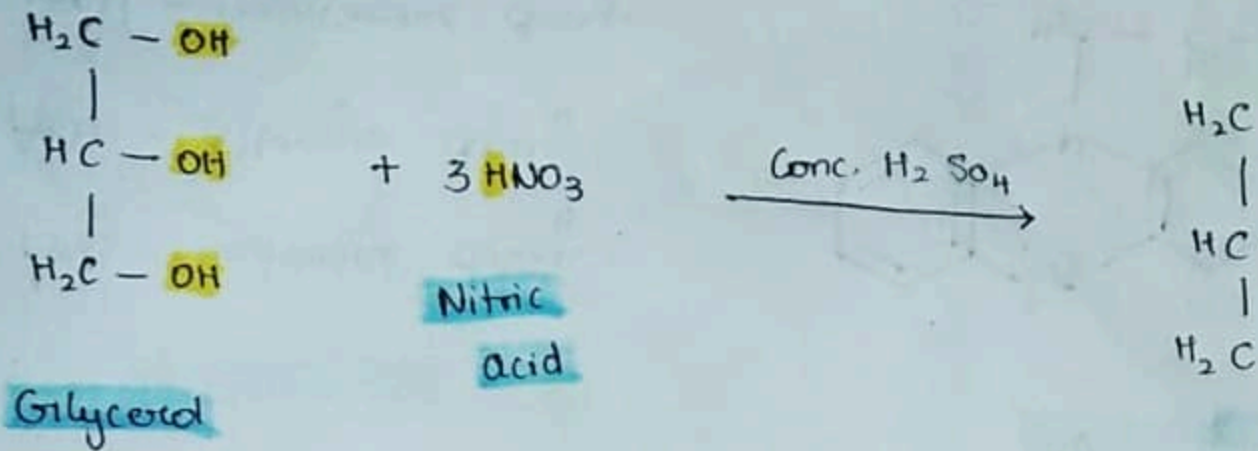 H₂C – OH
|
HC – OH
|
H₂C – OH
Gilycerol
+ 3 HNO₃
Nitric
acid
Conc. H₂ So₄
H₂C
|
HC
|
H₂C